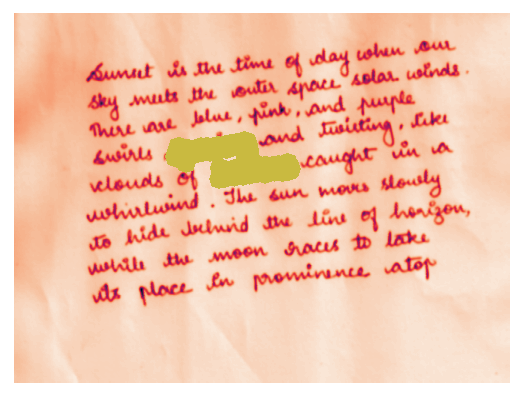 Sunset is the time of day when our
sky meets the outer space solar winds.
There are blue, pink, and purple
swirls and twisting, like
clouds of caught in a
whirlwind. The sun moves slowly
to hide behind the line of horizon,
while the moon races to take
its place in prominence atop